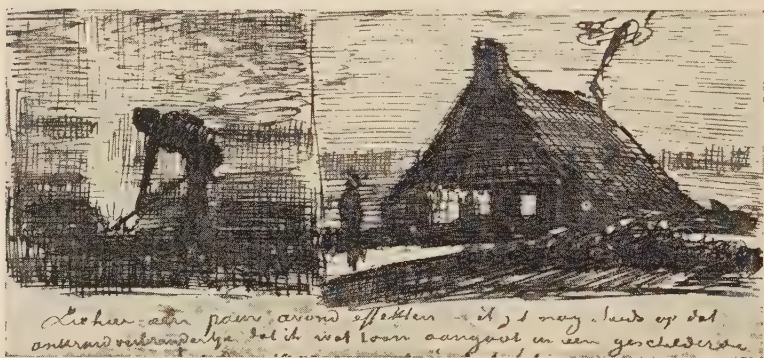 Ziehier een paar avond effekten – ik zit nog steeds op dat
onkruidverbrandertje dat ik wat toon aangaat in een geschilderde